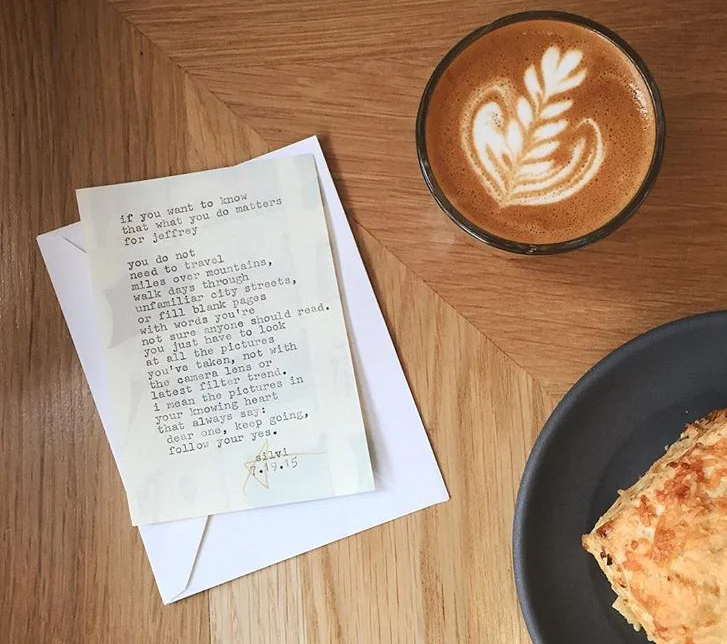 if you want to know
that what you do matters
for jeffrey
you do not
need to travel
miles over mountains,
walk days through
unfamiliar city streets,
or fill blank pages
with words you're
not sure anyone should read.
you just have to look
at all the pictures
you've taken, not with
the camera lens or
latest filter trend.
i mean the pictures in
your knowing heart
that always say:
dear one, keep going,
follow your yes.
silvi
7.19.15